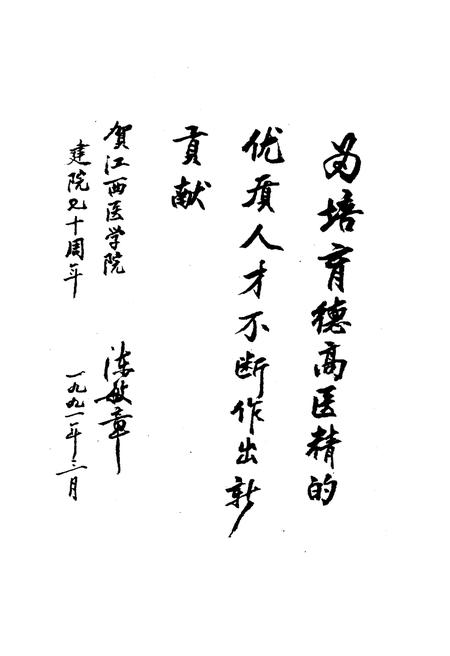 为培育德高医精的
优质人才不断作出新
贡献
贺江西医学院
建院九十周年
陈敏章
一九九一年三月